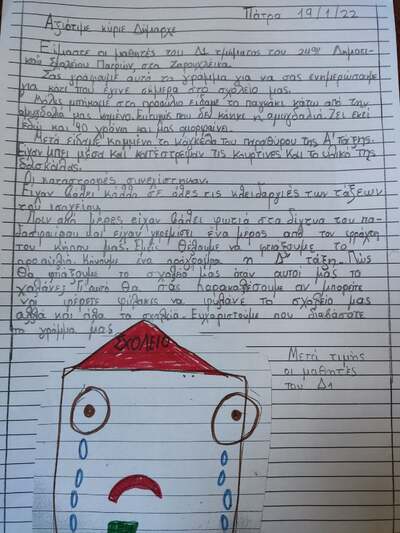 Πάτρα 19/1/22
Αξιότιμε κύριε Δήμαρχε
Είμαστε οι μαθητές του Δ1 τμήματος του 24ου Δημοτι-
κού Σχολείου Πατρών, στα Ζαρουχλέικα.
Σας γράφουμε αυτό το γράμμα για να σας ενημερώσουμε
για κάτι που έγινε σήμερα στο σχολείο μας.
Μόλις μπήκαμε στο προαύλιο είδαμε το παγκάκι κάτω από την
αμυγδαλιά μας καμένο. Ευτυχώς που δεν κάηκε η αμυγδαλιά. Ζει εκτί
εδώ και 40 χρόνια και μας ομορφαίνει.
Μετά είδαμε κομμένα τα κάγκελα του παραθύρου της Α' τάξης.
Είχαν μπει μέσα και κατέστρεψαν τις κουρτίνες και τα υλικά της
δασκάλας.
Οι καταστροφές συνεχίστηκαν.
Είχαν βάλει κόλλα σε όλες τις κλειδαριές των τάξεων
του ισογείου.
Πριν από μέρες είχαν βάλει φωτιά στα δίχτυα του πο-
δοσφαίρου και είχαν γκρεμίσει ένα μέρος από τον φράχτη
του κήπου μας. Εμείς θέλουμε να φτιάξουμε το
προαύλιο. Κάνουμε ένα πρόγραμμα η Δ' τάξη. Πώς
θα φτιάξουμε το σχολείο μας όταν αυτοί μας το
χαλάνε; Γι'αυτό θα σας παρακαλέσουμε αν μπορείτε
να φέρετε φύλακες να φυλάνε το σχολείο μας
αλλά και όλα τα σχολεία. Ευχαριστούμε που διαβάσατε
το γράμμα μας.
ΣΧΟΛΕΙΟ
Μετά τιμής
οι μαθητές
του Δ1